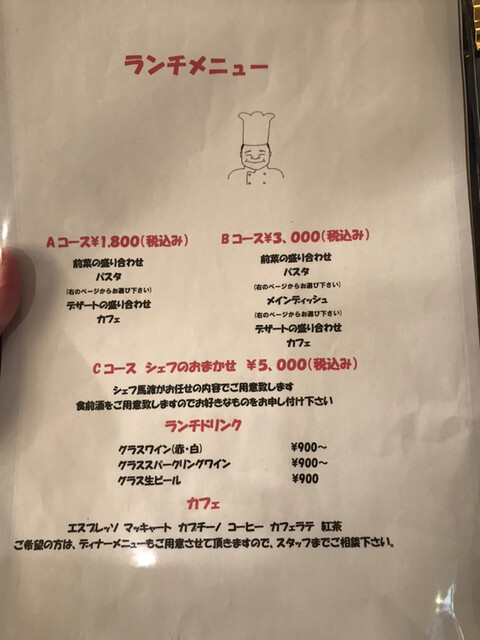 ランチメニュー
Aコース¥1,800(税込み)
前菜の盛り合わせ
パスタ
(右のページからお選び下さい)
デザートの盛り合わせ
カフェ
Bコース¥3、000(税込み)
前菜の盛り合わせ
パスタ
(右のページからお選び下さい)
メインディッシュ
(右のページからお選び下さい)
デザートの盛り合わせ
カフェ
Cコース シェフのおまかせ ¥5、000(税込み)
シェフ馬渡がお任せの内容でご用意致します
食前酒をご用意致しますのでお好きなものをお申し付け下さい
ランチドリンク
グラスワイン(赤・白) ¥900~
グラススパークリングワイン ¥900~
グラス生ビール ¥900
カフェ
エスプレッソ マッキャート カプチーノ コーヒー カフェラテ 紅茶
ご希望の方は、ディナーメニューもご用意させて頂きますので、スタッフまでご相談下さい。